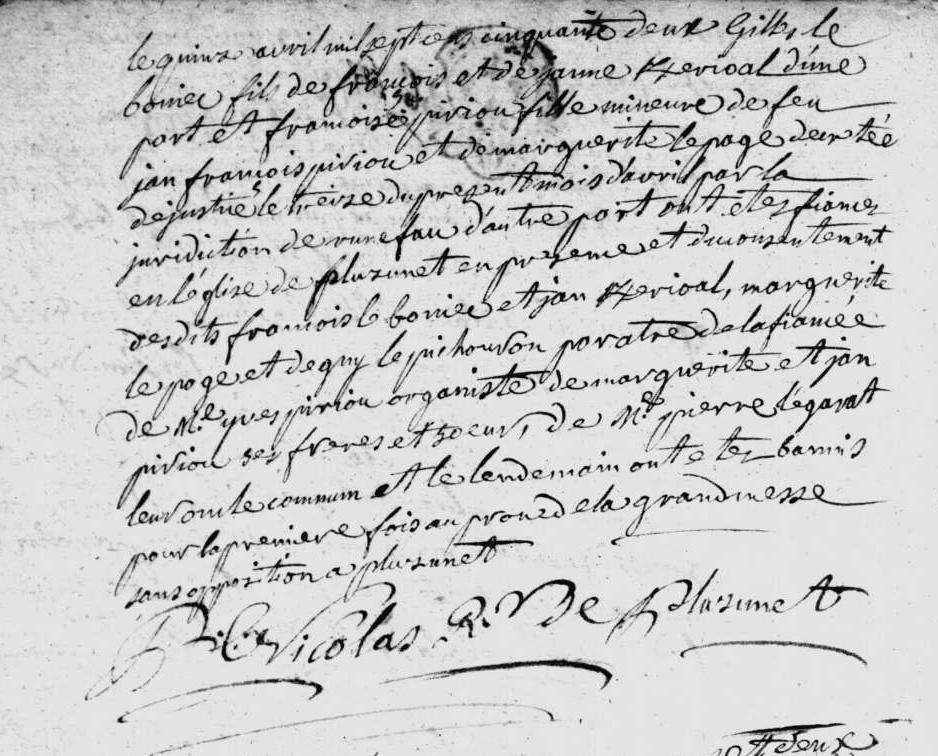 le quinze avril mil sept cens cinquante deux Gilles le
boniec fils de françois et de janne Kerioal d'une
part et françoise piriou fille mineure de feu
jan françois piriou et de marguerite le page decretée
de justice le treize du present mois d'avril par la
juridiction de runefau d'autre part ont etez fiancez
en l'église de pluzunet en presence et du consentement
desdits françois le boniec et jan Kerioal, marguerite
le page et de guy le pichouron paratre de la fiancée
de Me yves piriou organiste de marguerite et jan
piriou ses freres et soeur, de Me pierre légarat
leur oncle commun et le lendemain ont etez bannis
pour la premiere fois au prone de la grandmesse
sans opposition a pluzunet
Nicolas R. De Pluzunet
deux